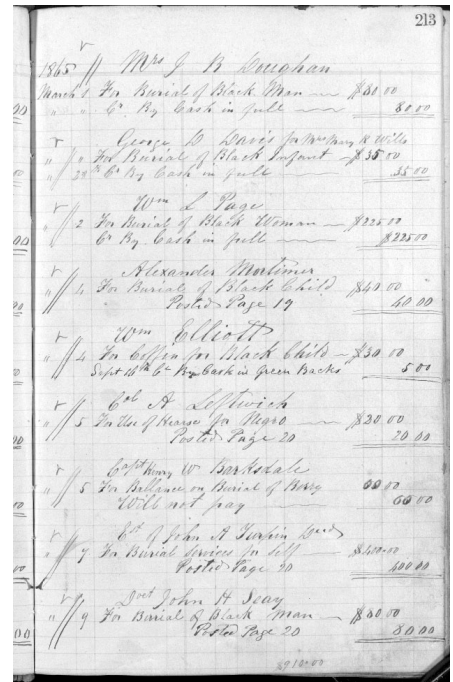 213
1865 // Mrs J R Doughan
March 1 For Burial of Black Man — $80 00
" " Cr By Cash in full — 80.00
George D Davis for Mrs Mary R Wills
" // " For Burial of Black Infant — $35 00
" 29th Cr By Cash in full — 35.00
Wm L Page
" // 2 For Burial of Black Woman — $225 00
Cr By Cash in full — $225 00
Alexander Mortimer
" // 4 For Burial of Black Child $40 00
Posted Page 19 40 00
Wm Elliott
" // 4 For Coffin for Black Child — $30 00
Sept 16th Cr By Cash in Green Backs 5 00
Col A Leftwich
" // 5 For Use of Hearse for Negro — $20 00
Posted Page 20 20 00
Capt Henry W Barksdale
" // 5 For Ballance on Burial of 60 00
Will not pay — 60 00
Est of John A Turpin Decd
" // 7 For Burial Services for Self — $400.00
Posted Page 20 400 00
Doct John H Seay
" // 9 For Burial of Black Man — $80 00
Posted Page 20 80.00